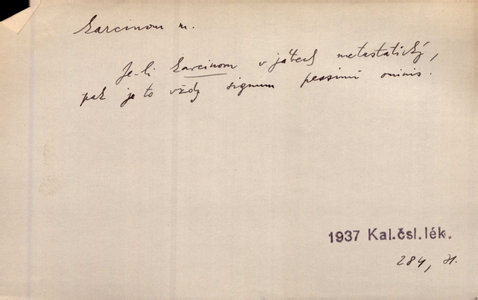 karcinom m.
Je-li karcinom v játrech metastatický,
pak je to vždy signum pessimi ominis.
1937 Kal.čsl.lék.
284, H.